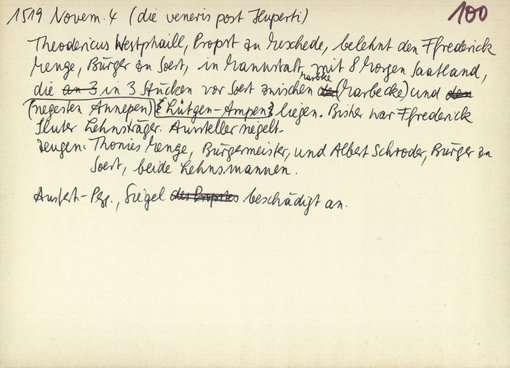 1519 Novem. 4 (die veneris post Huperti) 100
Theodericus Westphaill, Propst zu Meschede, belehnt den Ffrederick
Menge, Bürger zu Soest, in Mannstatt mit 8 Morgen Saatland,
die an 3 in 3 Stücken vor Soest zwischen
marbke
(Marbecke) und den
(negesten Annepen) {Lütgen-Ampen} liegen. Bisher war Ffrederick
Sluter Lehnsträger. Aussteller siegelt.
Zeugen: Thonies Menge, Bürgermeister, und Albert Schroder, Bürger zu
Soest, beide Lehnsmannen.
Ausfert.-Pg., Siegel des Propstes beschädigt an.